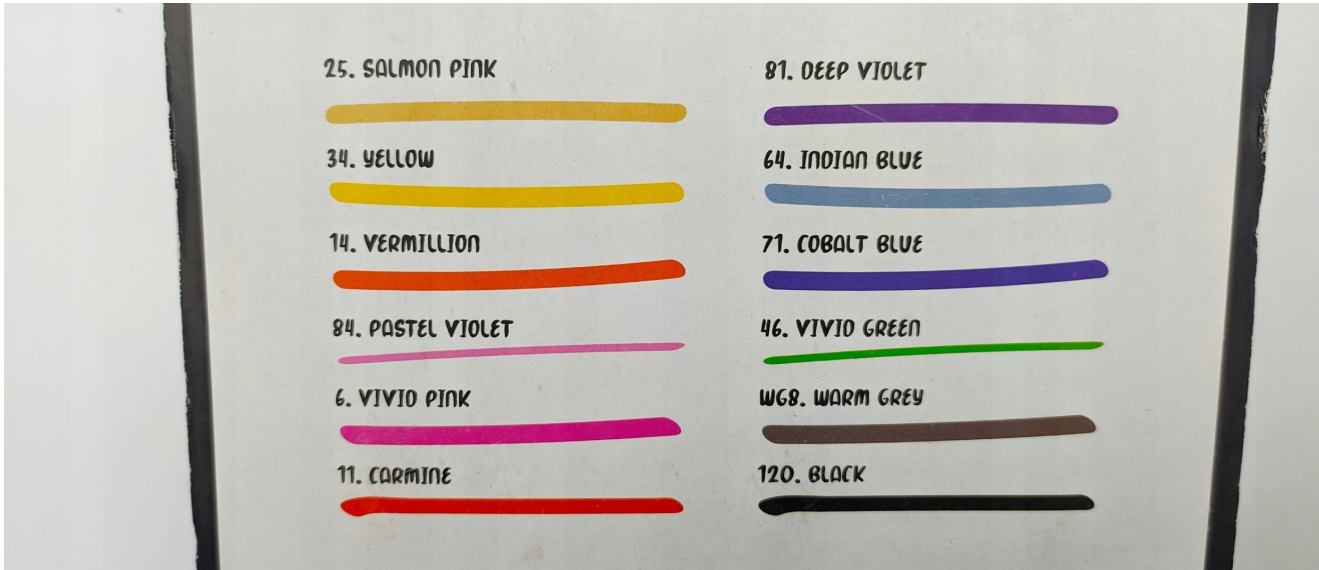 25. SALMON PINK
34. YELLOW
14. VERMILLION
84. PASTEL VIOLET
6. VIVID PINK
11. CARMINE
81. DEEP VIOLET
64. INDIAN BLUE
71. COBALT BLUE
46. VIVID GREEN
WG8. WARM GREY
120. BLACK